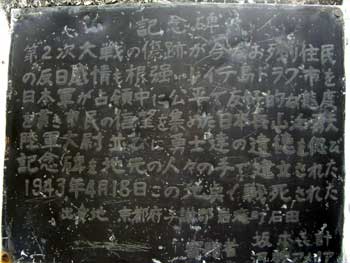 記念碑
第2次大戦の傷跡が今尚お残り住民
の反日感情も根強いレイテ島ドラグ市を
日本軍が占領中に公平で友好的な態度
を貫き市民の信望を集めた日本兵山
陸軍大尉並びに勇士達の遺徳を偲び
記念碑を地元の人々の手で建立された
1943年4月18日この地 戦死された
出身地 京都府 郡岩滝町石田
坂本